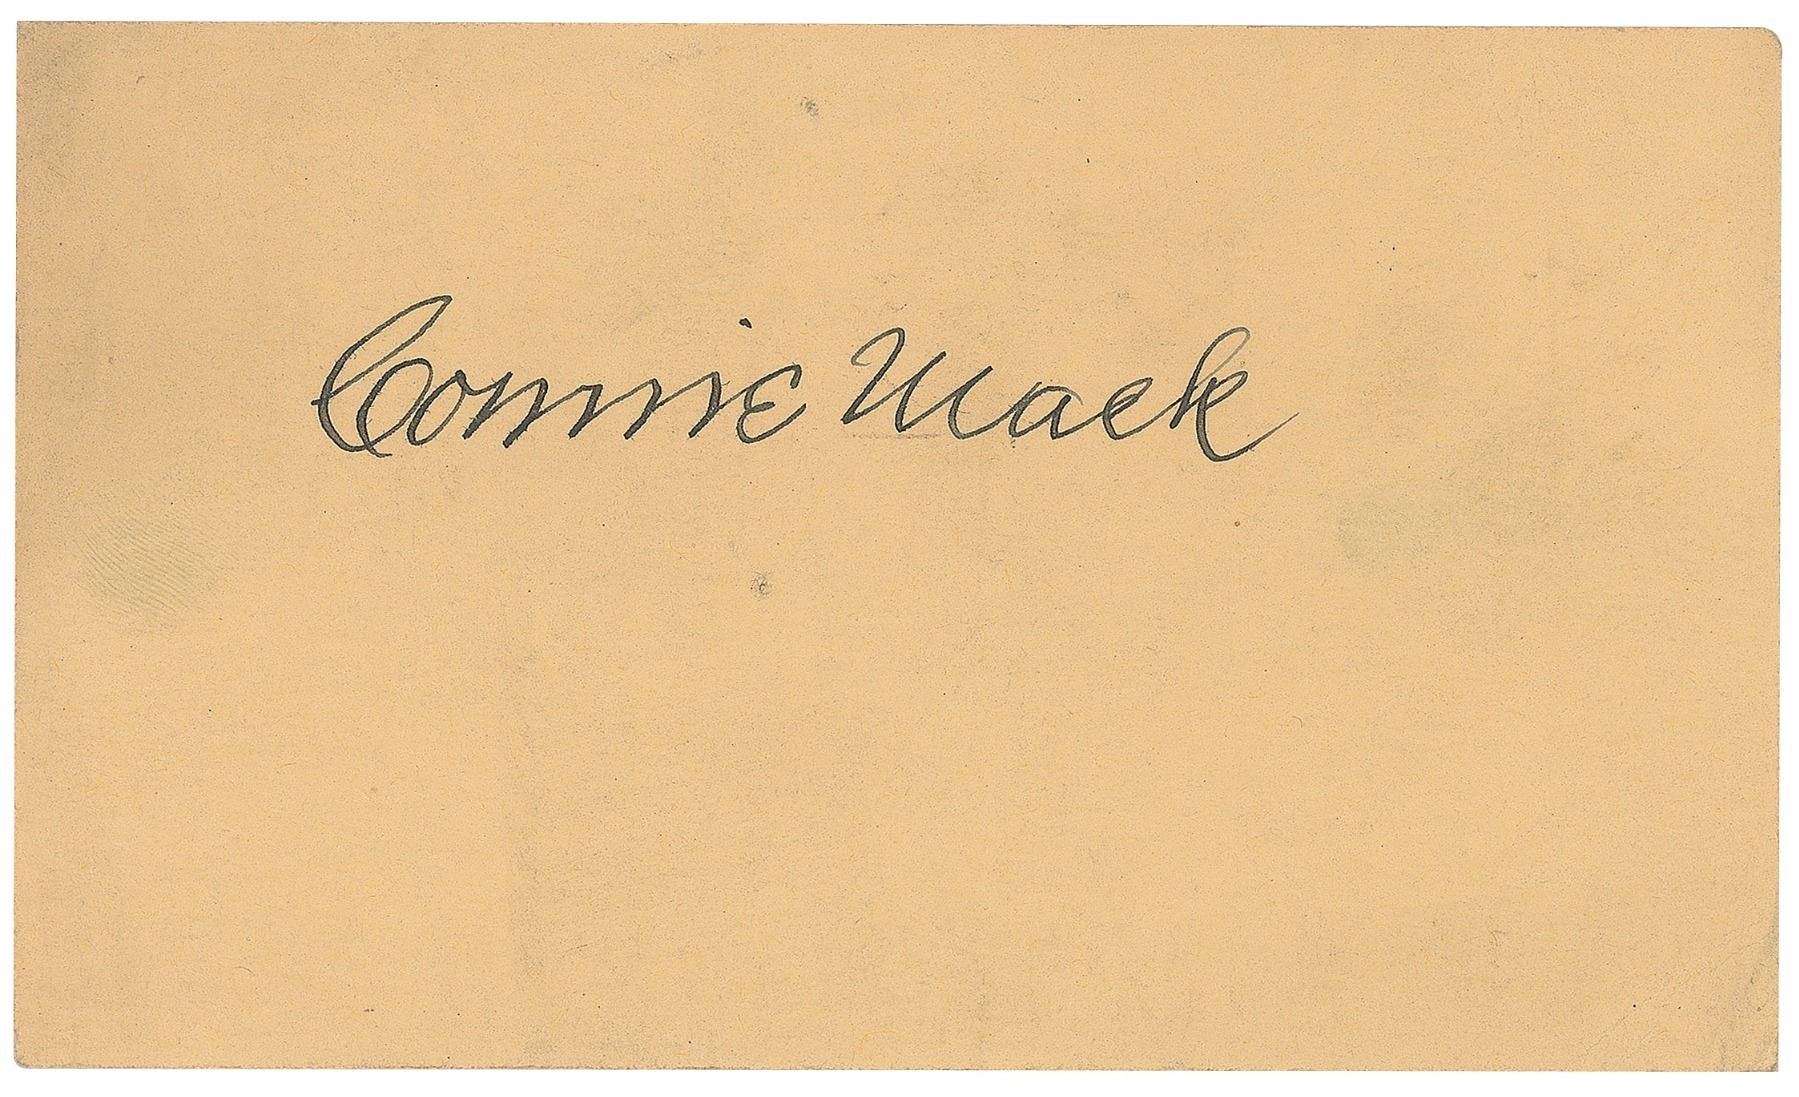 Connie Mack